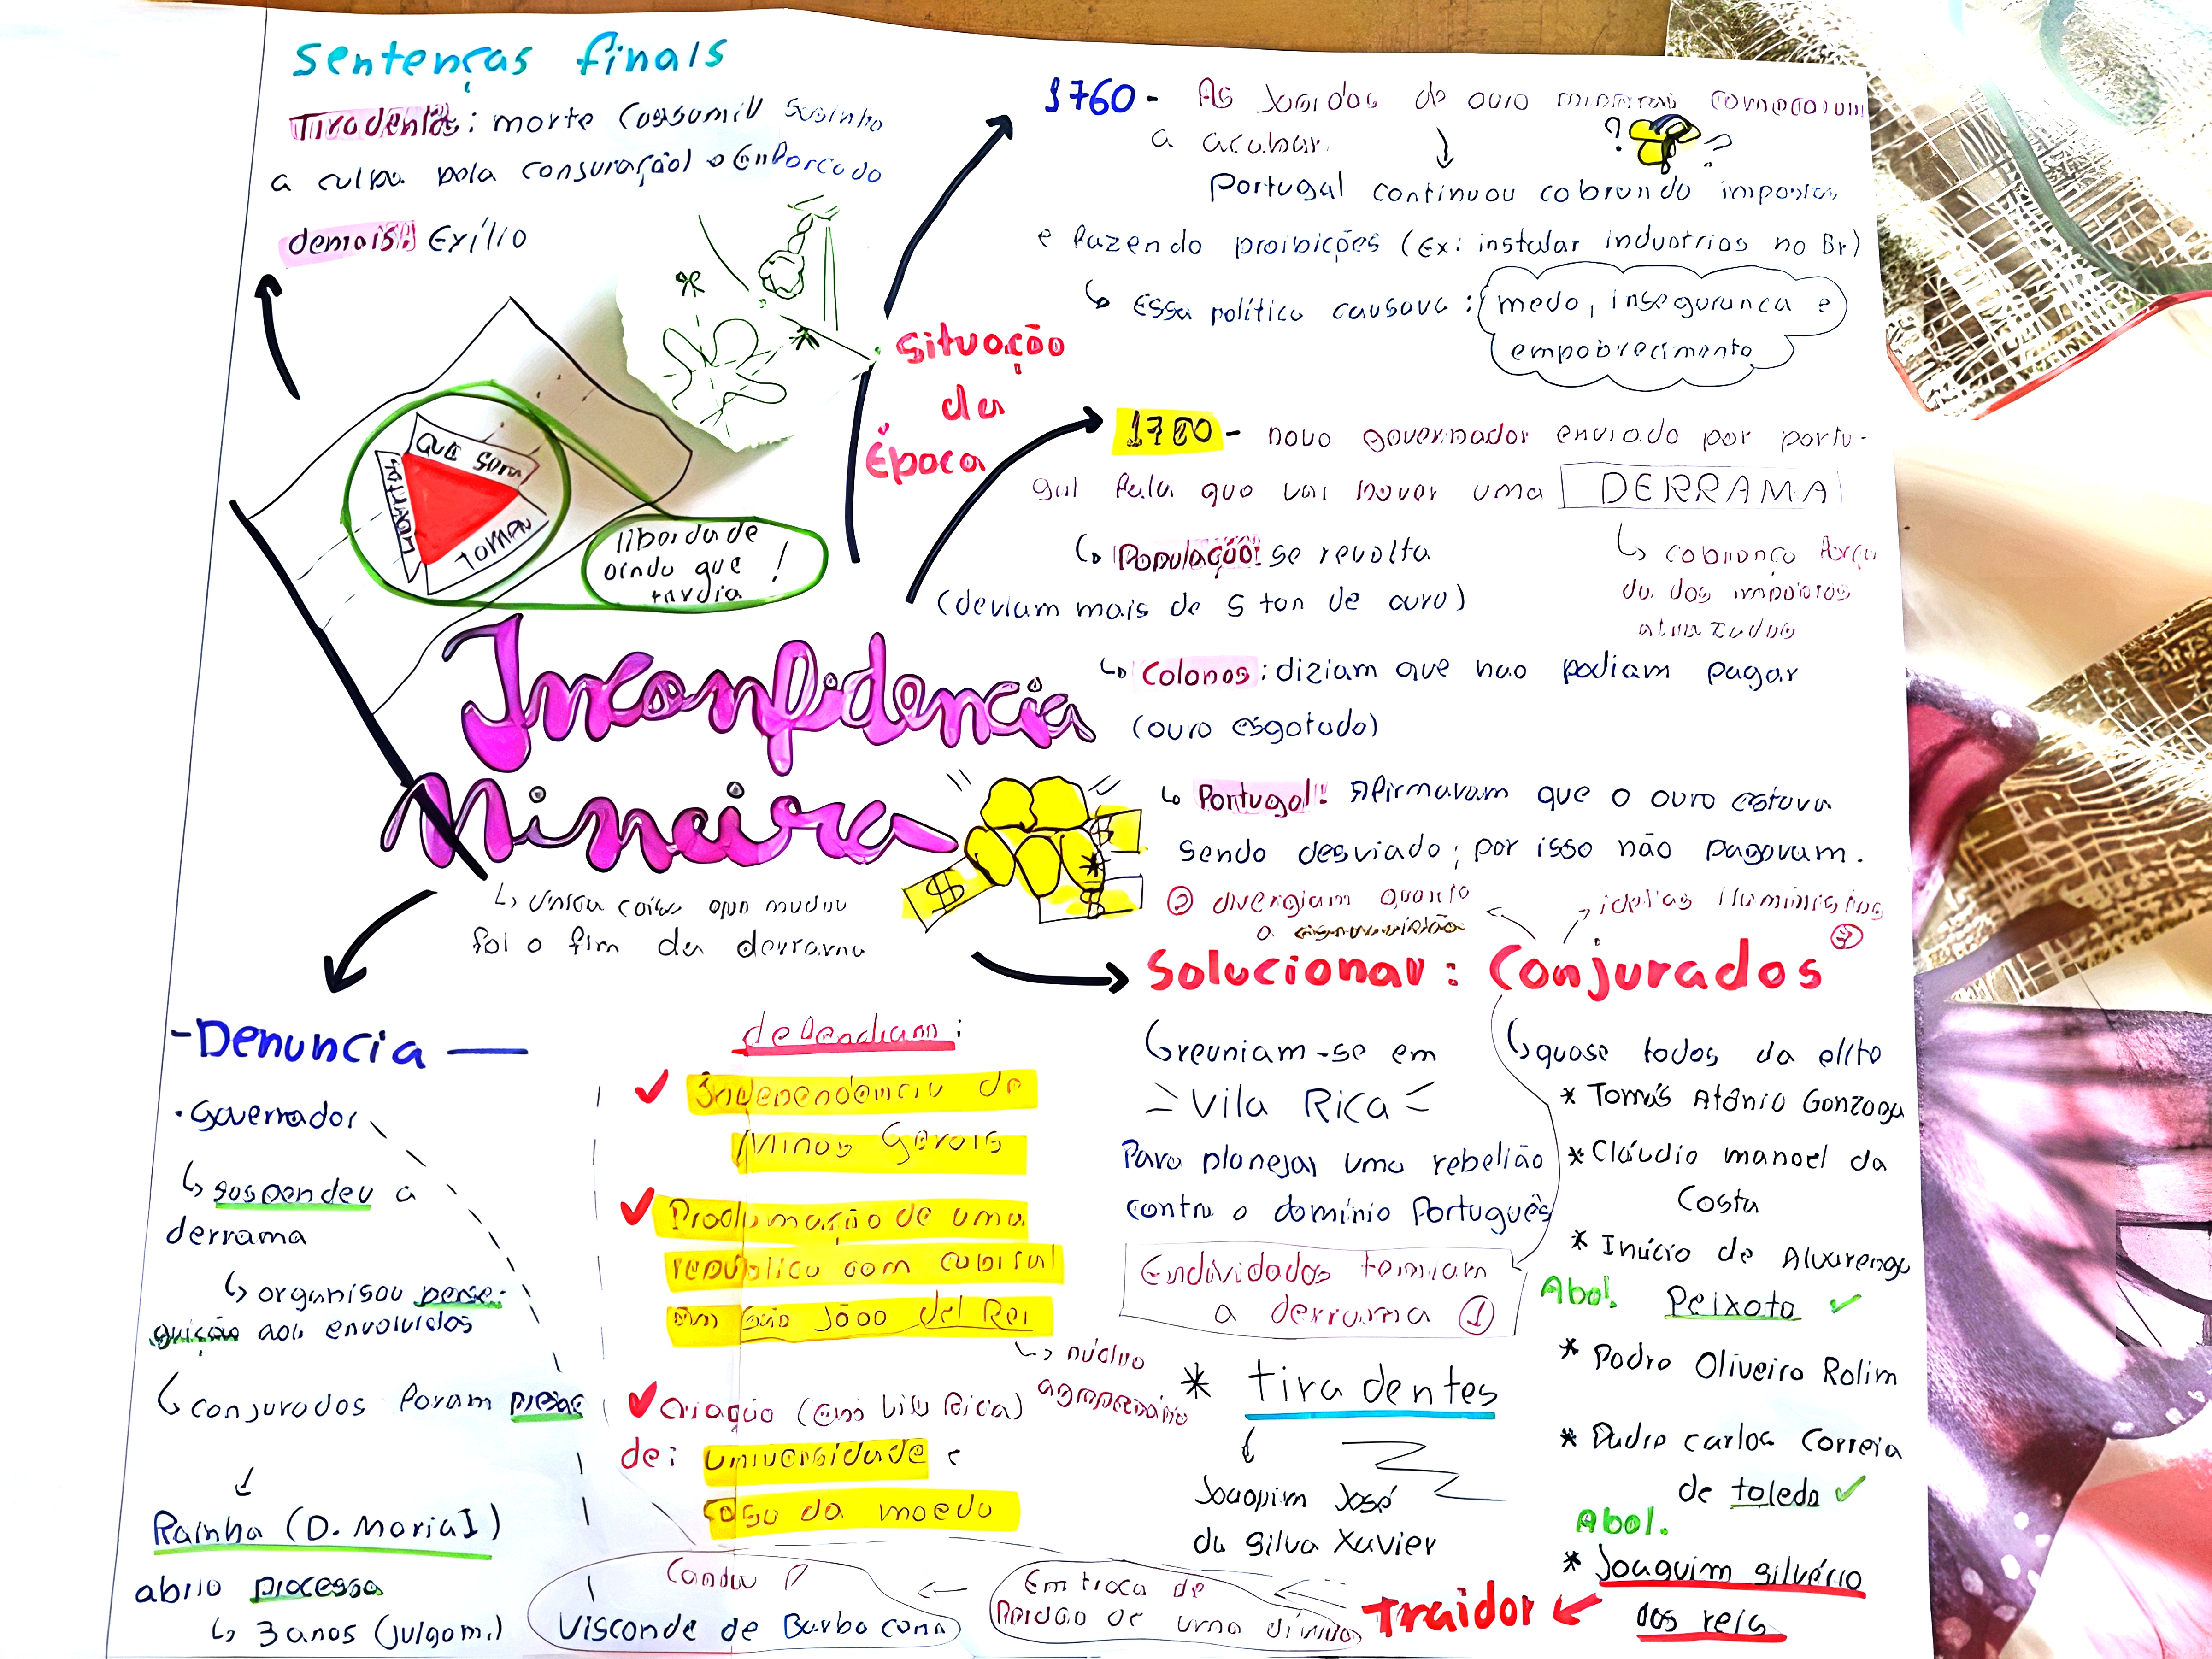 Sentenças finais
Tiradentes: morte (assumiu sosinho
a culpa pela conjuração) → enforcado
demais: Exílio
QUE SERA
TAMEN
libordade
ainda que
tardia !
Situação
da
Época
1760 - As jasidas de ouro mineiras começaram
a acabar.
Portugal continuou cobrando impostos
e fazendo proibições (Ex: instalar industrias no Br)
↳ Essa política causava: medo, insegurança e
empobrecimento
1780 - novo governador enviado por portu-
gal fala que vai haver uma DERRAMA
↳ cobrança força
da dos impostos
atrazados
↳ População: se revolta
(deviam mais de 5 ton de ouro)
↳ Colonos: diziam que nao podiam pagar
(ouro esgotado)
↳ Portugal: Afirmavam que o ouro estava
sendo desviado; por isso não pagavam.
Inconfidencia
Mineira
↳ Única coisa que mudou
foi o fim da derrama
② divergiam quanto
a escravidão
ideias iluministas
③
Solucionar: Conjurados
↳ reuniam-se em
Vila Rica
Para planejar uma rebelião
contra o domínio Português
Endividados temiam
a derrama ①
* tiradentes
Joaquim José
da Silva Xavier
↳ quase todos da elite
* Tomás Atônio Gonzaga
* Cláudio manoel da
Costa
* Inácio de Alvarenga
Abol. Peixoto ✓
* Padre Oliveira Rolim
* Padre Carlos Correia
de toledo ✓
Abol.
* Joaquim silvério
dos reis
Traidor
Em troca de
Perdão de uma dívida
Contou p/
Visconde de Barbacena
defendiam:
✓ Independência de
Minas Gerais
✓ Proclamação de uma
república com capital
em São João del Rei
↳ núcleo
agropecuário
✓ Criação (em Vila Rica)
de: universidade e
casa da moeda
- Denuncia —
• Governador
↳ suspendeu a
derrama
↳ organisou perse-
guição aos envolvidos
↳ conjurados foram presos
Rainha (D. Maria I)
abriu processo
↳ 3 anos (julgam.)